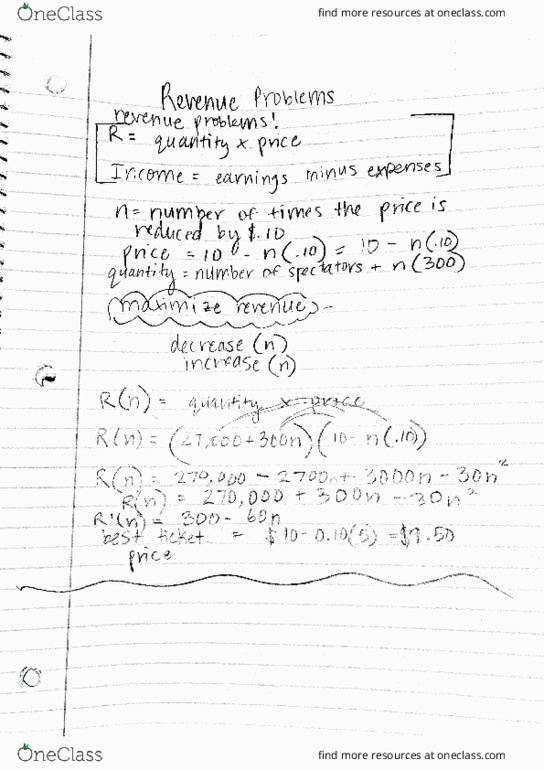 OneClass
find more resources at oneclass.com
Revenue Problems
revenue problems!
R = quantity x price
Income = earnings minus expenses
n = number of times the price is
reduced by $.10
price = 10 - n(.10) = 10 - n(.10)
quantity = number of spectators + n(300)
maximize revenue -
decrease (n)
increase (n)
R(n) = quantity x price
R(n) = (27,000+300n)(10-n(.10))
R(n) = 270,000 - 2700n + 3000n - 30n²
R(n) = 270,000 + 300n - 30n²
R'(n) = 300 - 60n
best ticket = $10-0.10(5) = $9.50
price
OneClass
find more resources at oneclass.com